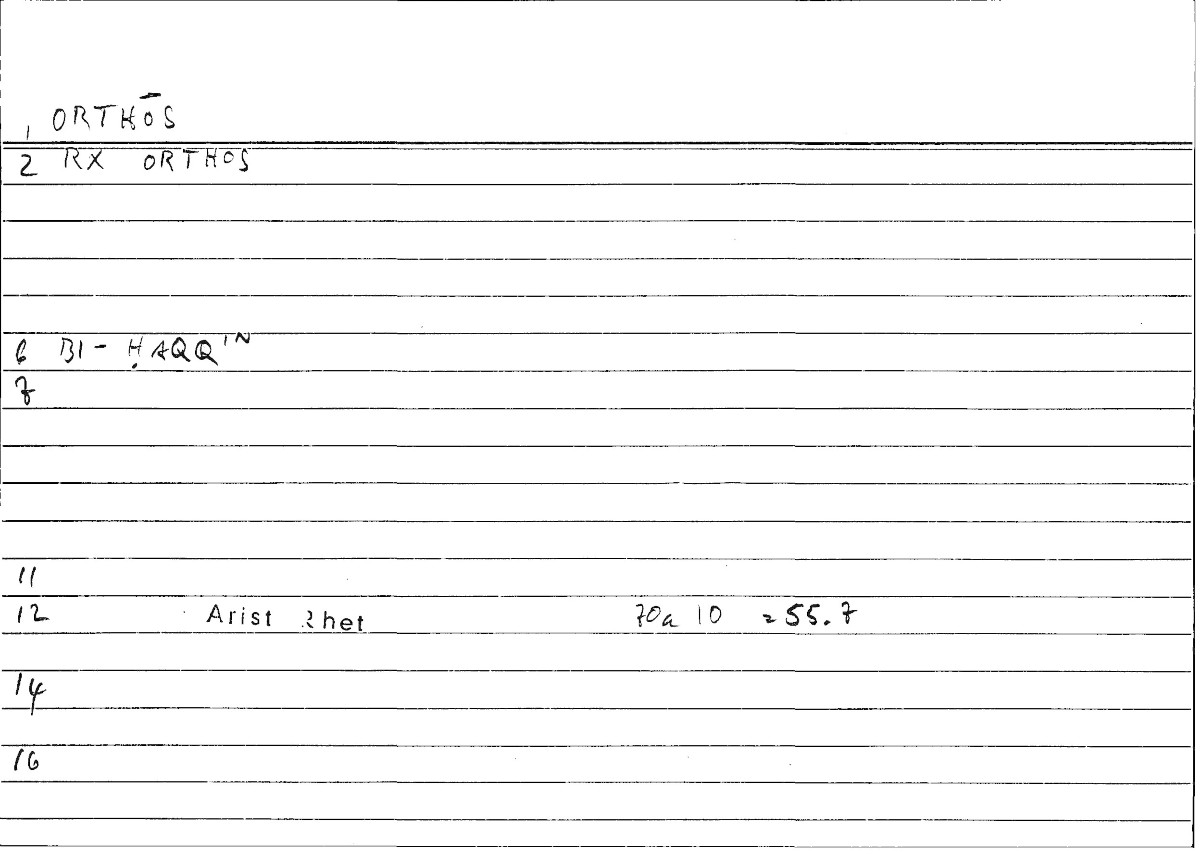 1 ORTHŌS
2 RX ORTHOS
6 BI-ḤAQQ^IN
7
11
12 Arist Rhet 70a 10 = 55.7
14
16